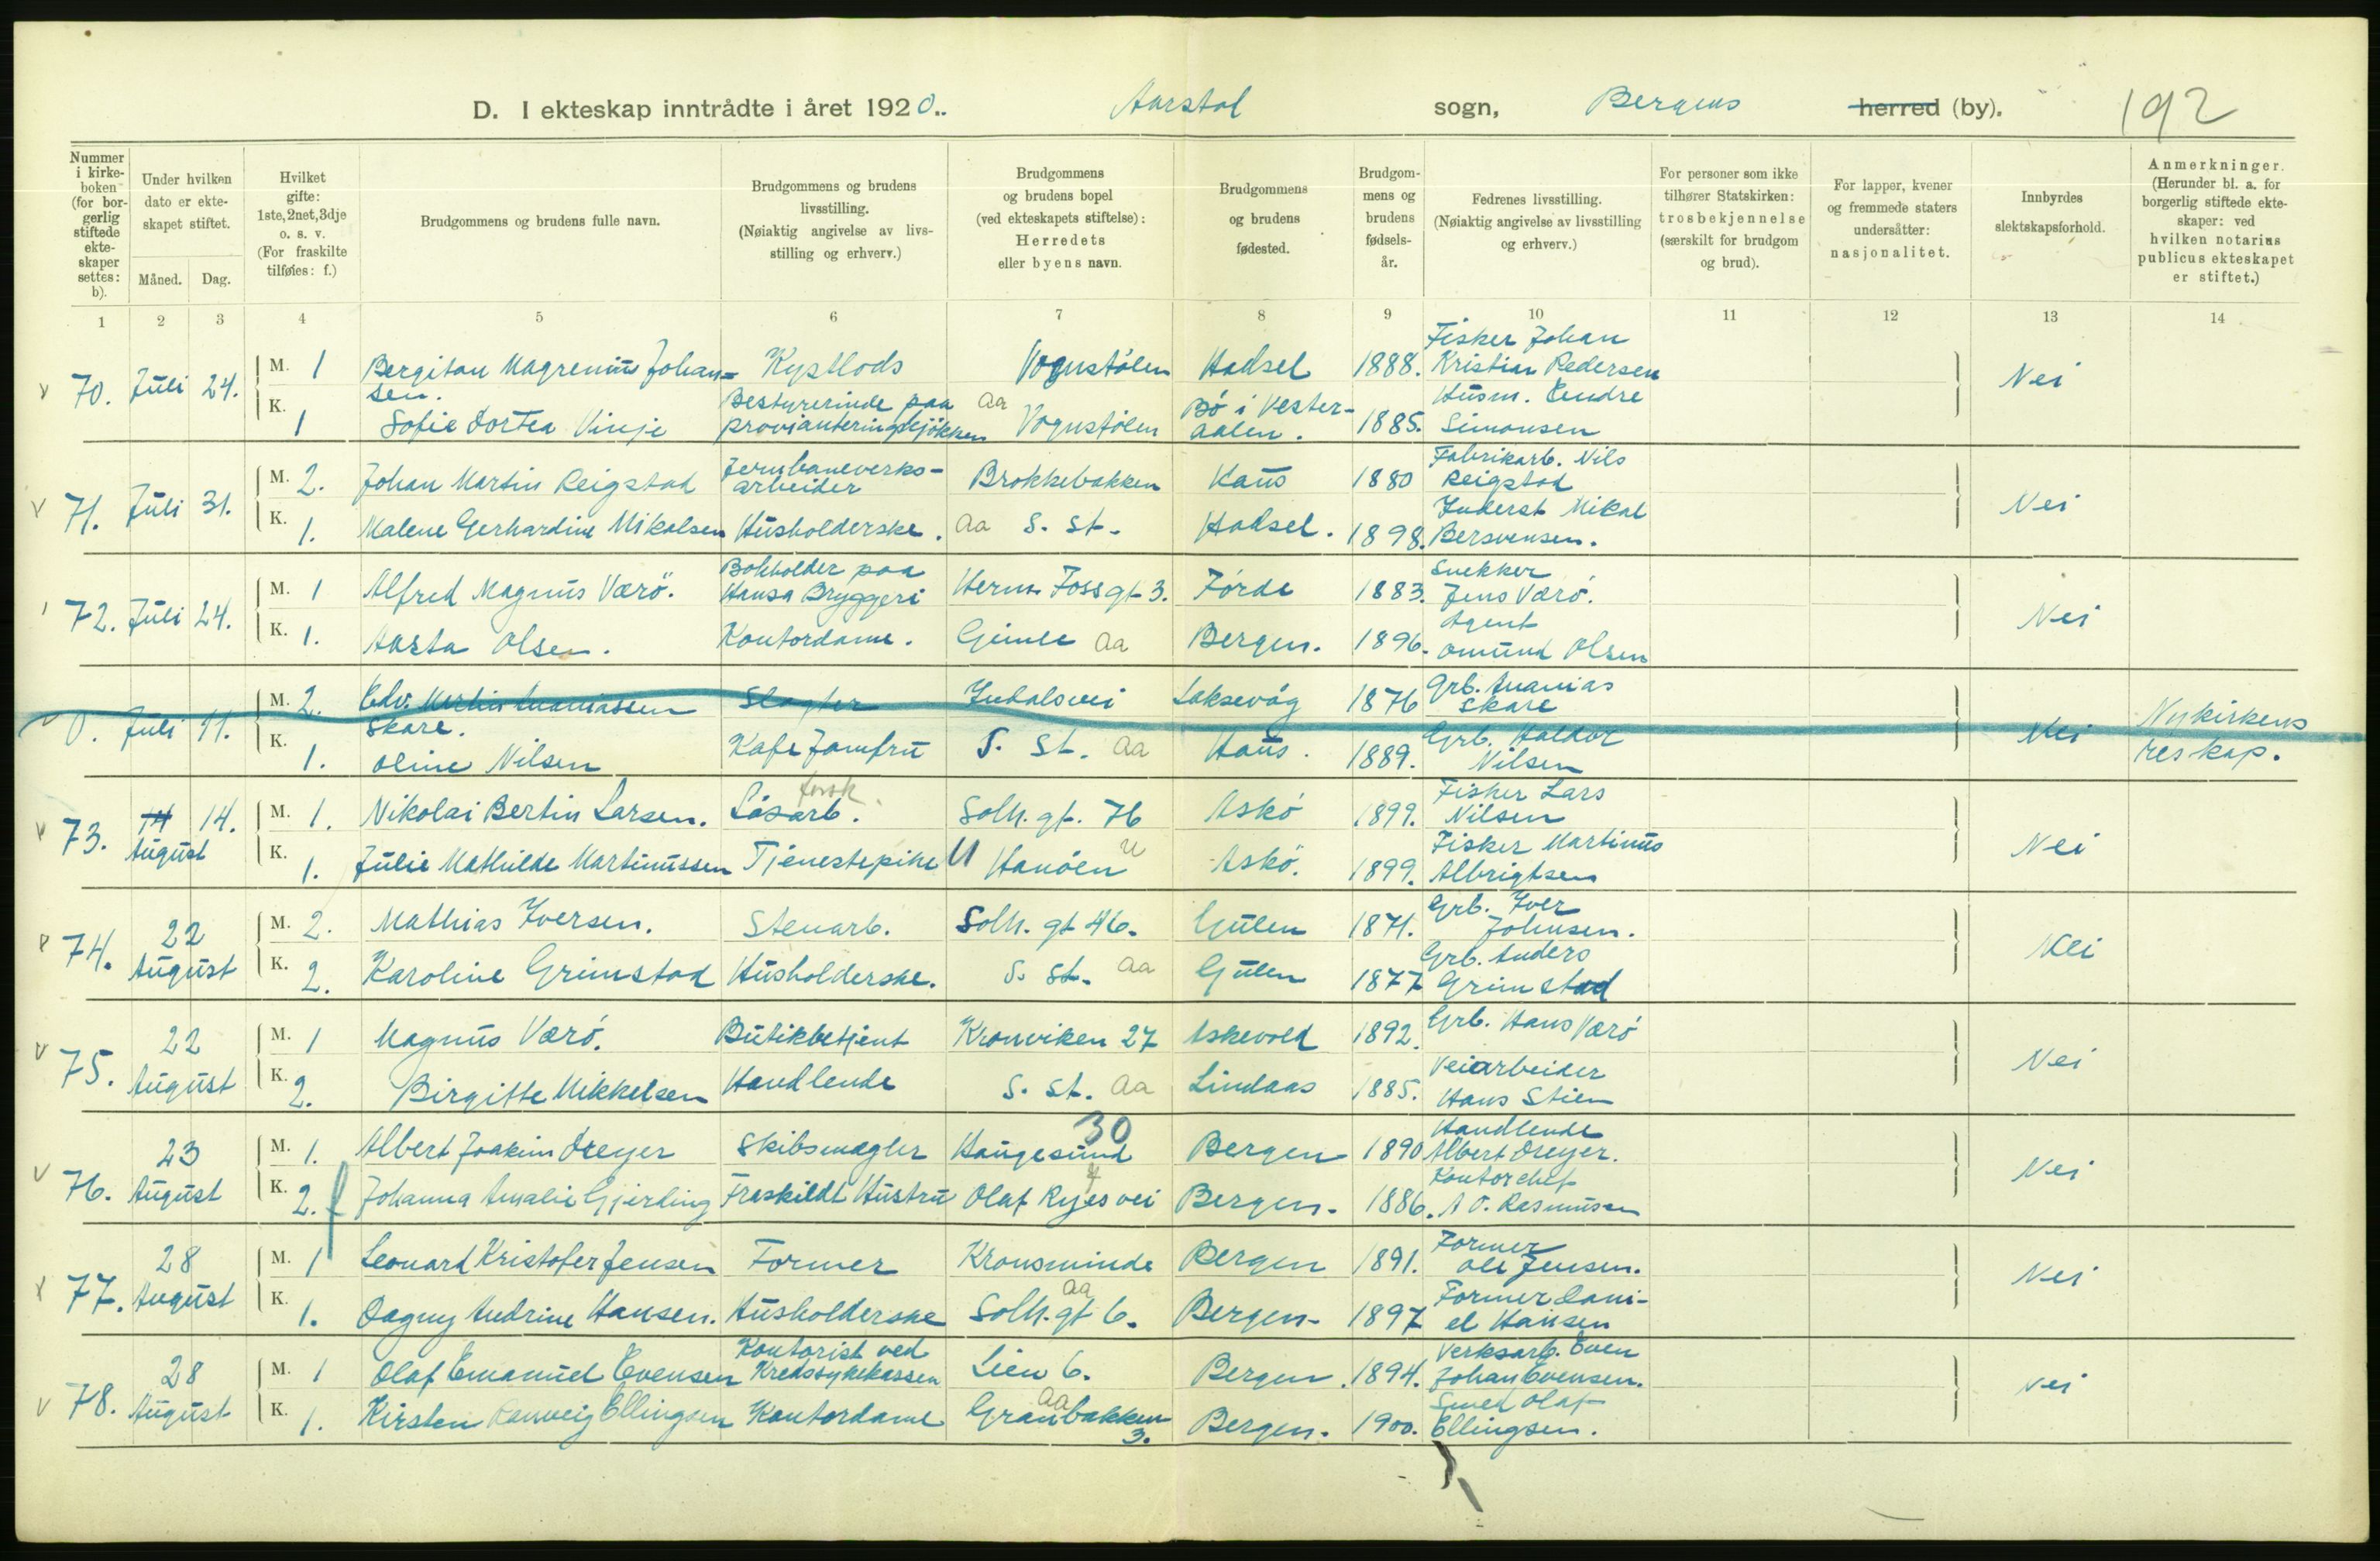 D. I ekteskap inntrådte i året 1920.. Aarstad sogn, Bergens herred (by). 192
Nummer i kirkeboken (for borgerlig stiftede ekteskaper settes: b).
Under hvilken dato er ekteskapet stiftet.
Måned. Dag.
Hvilket gifte: 1ste, 2net, 3dje o. s. v. (For fraskilte tilføies: f.)
Brudgommens og brudens fulle navn.
Brudgommens og brudens livsstilling. (Nøiaktig angivelse av livsstilling og erhverv.)
Brudgommens og brudens bopel (ved ekteskapets stiftelse): Herredets eller byens navn.
Brudgommens og brudens fødested.
Brudgommens og brudens fødselsår.
Fedrenes livsstilling. (Nøiaktig angivelse av livsstilling og erhverv.)
For personer som ikke tilhører Statskirken: trosbekjennelse (særskilt for brudgom og brud).
For lapper, kvener og fremmede staters undersåtter: nasjonalitet.
Innbyrdes slektskapsforhold.
Anmerkninger. (Herunder bl. a. for borgerlig stiftede ekteskaper: ved hvilken notarius publicus ekteskapet er stiftet.)
1 2 3 4 5 6 7 8 9 10 11 12 13 14
v 70. Juli 24. M. 1 Bergitan Magrenius Johansen. Kystlods Vognstölen Hadsel 1888. Fisker Johan Kristian Pedersen Nei
K. 1 Sofie Dortea Vinje Bestyrerinde paa provianteringskjökken aa Vognstölen Bö i Vesteraalen. 1885. Husm. Endre Simonsen
v 71. Juli 31. M. 2. Johan Martin Reigstad Jernbaneverksarbeider Brokkebakken Haus 1880 Fabrikarb. Nils Reigstad Nei
K. 1. Malene Gerhardine Mikalsen Husholderske. aa S. St. Hadsel. 1898. Inderst Mikal Bersvensen.
72. Juli 24. M. 1 Alfred Magnus Värö. Bokholder paa Hansa Bryggeri Herm. Fossgt 3. Förde 1883. Snekker Jens Värö. Nei
K. 1. Aasta Olsen. Kontordame. Gimle aa Bergen. 1896. Agent Omund Olsen
0. Juli 11. M. 2. Edv. Martin Ananiassen Skare. Slagter Indalsvei Laksevåg 1876 Grb. Ananias Skare Nei Nykirkens reskap.
K. 1. Oline Nilsen Kafe Jomfru S. St. aa Haus. 1889. Grb. Haldor Nilsen
v 73. August 14. M. 1. Nikolai Bertin Larsen. Lösarb. forsk. Solh. gt. 76 Askö 1899. Fisker Lars Nilsen Nei
K. 1. Julie Mathilde Martinussen Tjenestepike U Hanöen U Askö. 1899. Fisker Martinus Albrigtsen
74. 22 August M. 2. Mathias Iversen. Stenarb. Solh. gt 46. Gulen 1871. Grb. Iver Johnsen. Nei
K. 2. Karoline Grimstad Husholderske. S. St. aa Gulen 1877 Grb. Anders Grimstad
v 75. 22 August M. 1 Magnus Värö. Butikbetjent Kronviken 27 Askevold 1892. Grb. Hans Värö Nei
K. 2. Birgitte Mikkelsen Handlende S. St. aa Lindaas 1885. Veiarbeider Hans Stien
v 76. 23 August M. 1. Albert Joakim Dreyer Skibsmægler Haugesund 30 Bergen 1890 Handlende Albert Dreyer. Nei
K. 2. f Johanna Amalie Gjerding Fraskildt Hustru Olaf Ryes vei Bergen. 1886. Kontorchef A O. Rasmussen
77. 28 August M. 1 Leonard Kristofer Jensen Former Kronsminde Bergen 1891. Former Ole Jensen. Nei
K. 1. Dagny Andrine Hansen. Husholderske Solh. gt 6. aa Bergen. 1897 Former Daniel Hansen
v 78. 28 August M. 1 Olaf Emanuel Evensen Kontorist ved Kredssykekassen Lien 6. Bergen. 1894. Verksarb. Even Johan Evensen. Nei
K. 1. Kirsten Ranveig Ellingsen Kontordame Granbakken 3. aa Bergen. 1900. Smed Olaf Ellingsen.